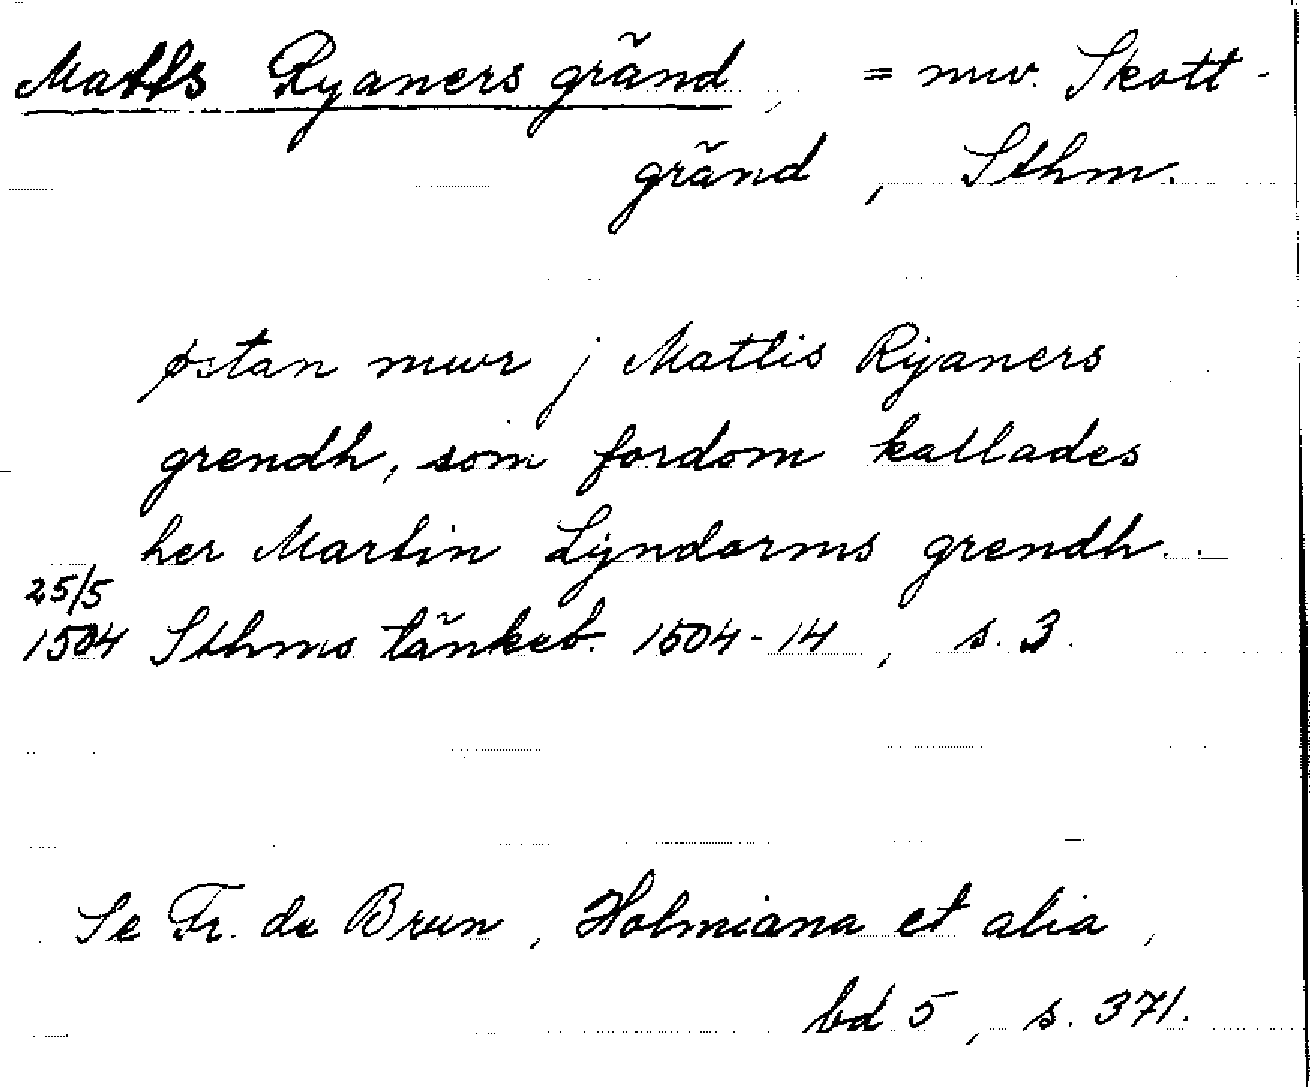 Matts Ryaners gränd, = nuv. Skott-
gränd, Sthm.
østan mwr j Mattis Rijaners
grendh, som fordom kallades
her Martin Lijndorms grendh.
25/5
1504 Sthms tänkeb. 1504-14, s. 3.
Se Fr. de Brun, Holmiana et alia,
bd 5, s. 371.